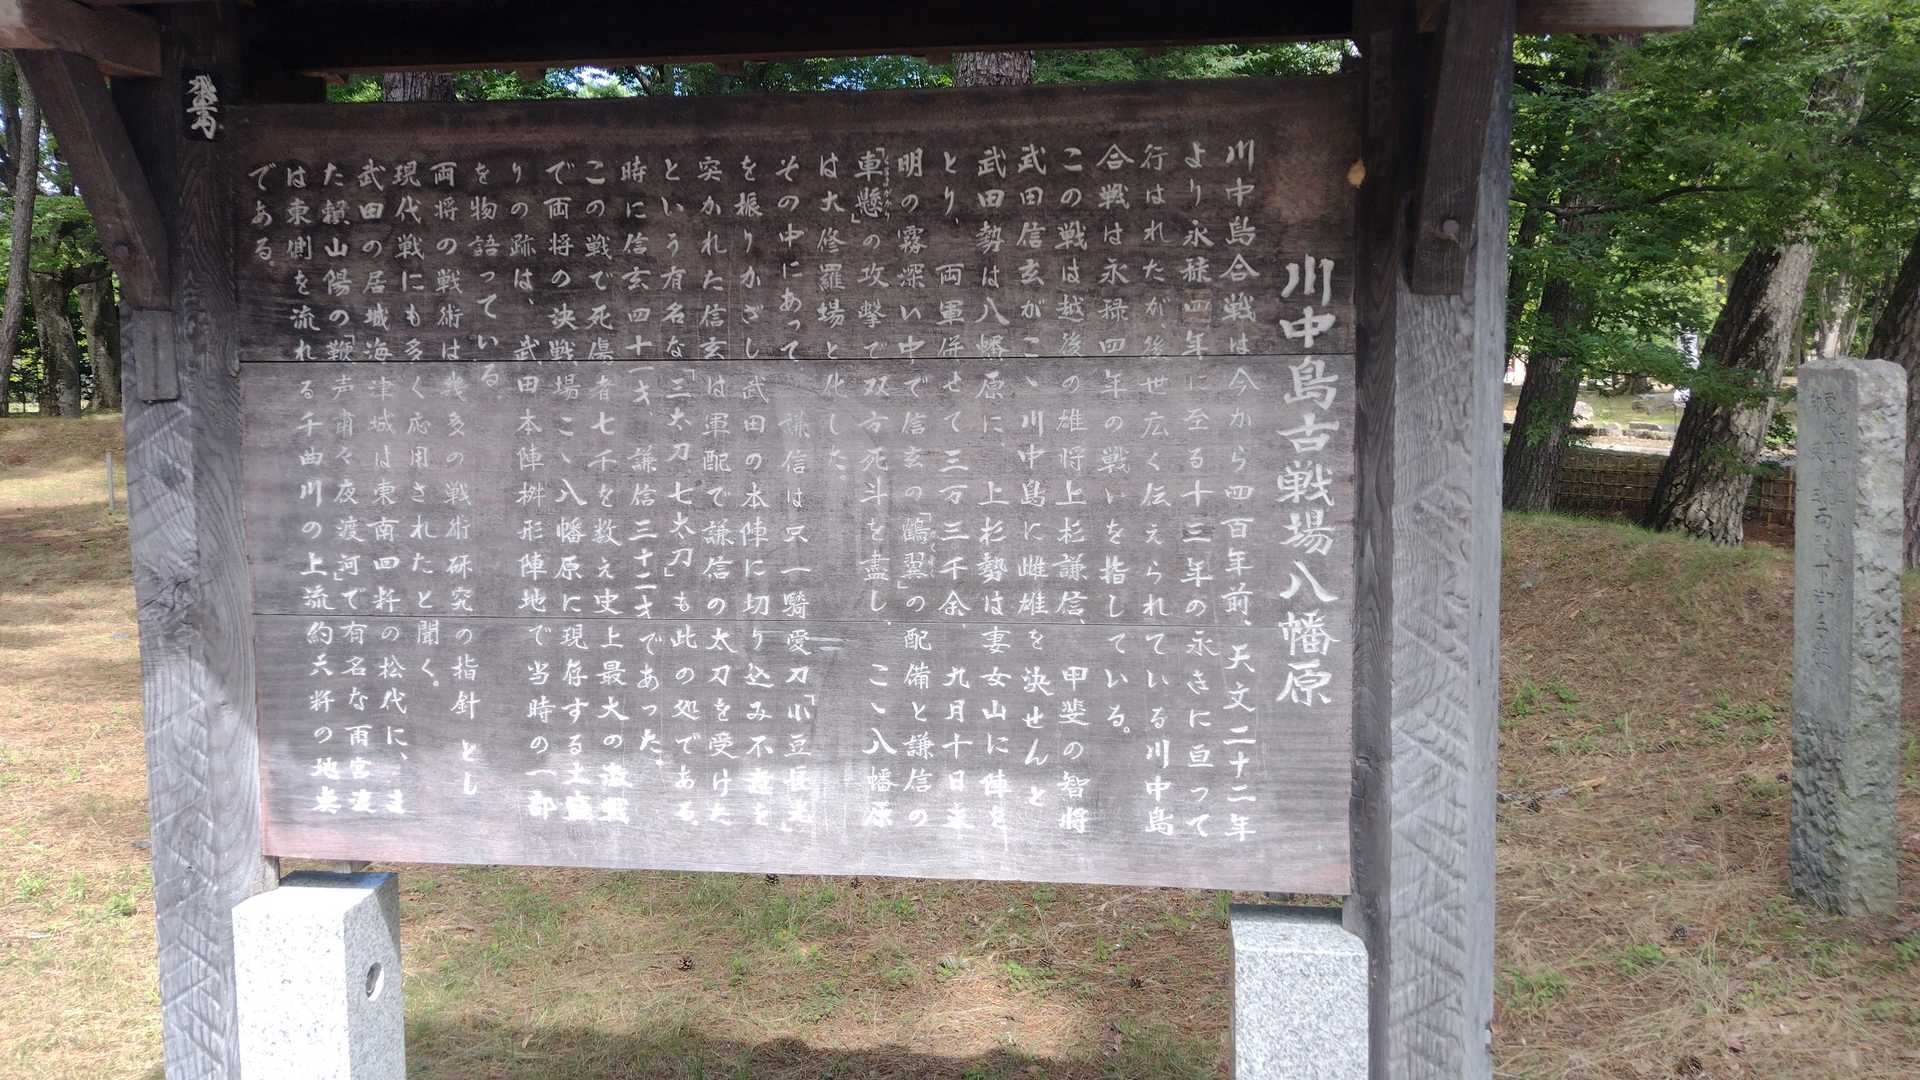 川中島古戦場八幡原
川中島合戦は今から四百年前、天文二十二年
より永禄四年に至る十三年の永きに亘って
行はれたが、後世広く伝えられている川中島
合戦は永禄四年の戦いを指している。
この戦は越後の雄将上杉謙信、甲斐の智将
武田信玄がこゝ川中島に雌雄を決せんと
武田勢は八幡原に、上杉勢は妻女山に陣を
とり、両軍併せて三万三千余、九月十日未
明の霧深い中で信玄の「鶴翼」の配備と謙信の
「車懸」の攻撃で双方死斗を盡し、こゝ八幡原
は大修羅場と化した。
その中にあって、謙信は只一騎愛刀「小豆長光」
を振りかざし武田の本陣に切り込み不意を
突かれた信玄は軍配で謙信の太刀を受けた
という有名な「三太刀七太刀」も此の処である。
時に信玄四十一才、謙信三十二才であった。
この戦で死傷者七千を数え史上最大の激戦
で両将の決戦場こゝ八幡原に現存する土盛
りの跡は、武田本陣桝形陣地で当時の一部
を物語っている。
両将の戦術は幾多の戦術研究の指針とし
現代戦にも多く応用されたと聞く。
武田の居城海津城は東南四粁の松代に、ま
た頼山陽の「鞭声粛々夜渡河」で有名な雨宮渡
は東側を流れる千曲川の上流約六粁の地点
である。